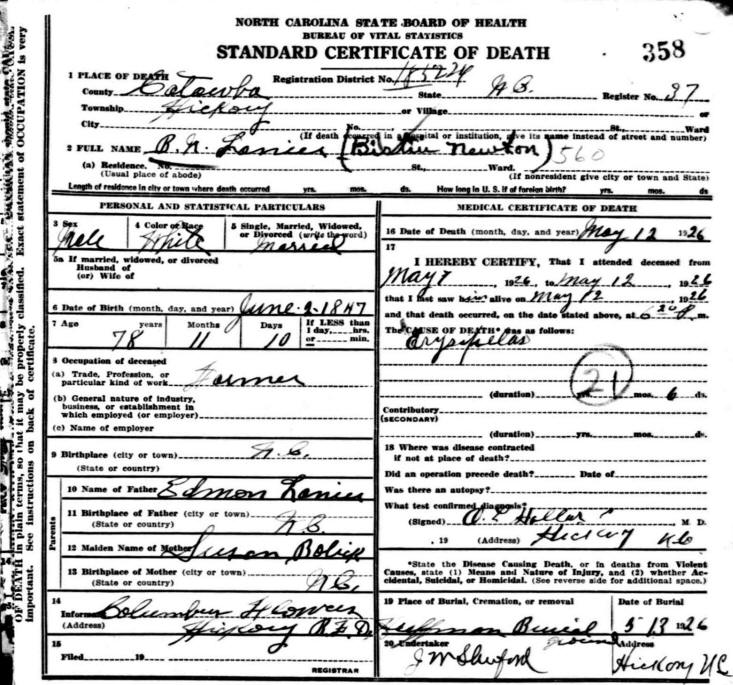 NORTH CAROLINA STATE BOARD OF HEALTH
BUREAU OF VITAL STATISTICS
STANDARD CERTIFICATE OF DEATH
358
1 PLACE OF DEATH
Registration District No.
County Catawba State N.C. Register No. 37
Township Hickory or Village or
City No. St., Ward
(If death occurred in a hospital or institution, give its name instead of street and number)
2 FULL NAME B. N. Lanier (Newton) 560
(a) Residence. No. St., Ward.
(Usual place of abode) (If nonresident give city or town and State)
Length of residence in city or town where death occurred yrs. mos. ds. How long in U. S. if of foreign birth? yrs. mos. ds
PERSONAL AND STATISTICAL PARTICULARS
3 Sex 4 Color or Race 5 Single, Married, Widowed, or Divorced (write the word)
Male White Married
5a If married, widowed, or divorced
Husband of
(or) Wife of
6 Date of Birth (month, day, and year) June 2-1847
7 Age years Months Days If LESS than
1 day, hrs.
or min.
78 11 10
8 Occupation of deceased
(a) Trade, Profession, or
particular kind of work Farmer
(b) General nature of industry,
business, or establishment in
which employed (or employer)
(c) Name of employer
9 Birthplace (city or town) N.C.
(State or country)
Parents
10 Name of Father Edmon Lanier
11 Birthplace of Father (city or town)
(State or country) N.C.
12 Maiden Name of Mother Susan Bolick
13 Birthplace of Mother (city or town)
(State or country) N.C.
14
Informant Columbus
(Address) Hickory R.F.D.
15
Filed 19
REGISTRAR
MEDICAL CERTIFICATE OF DEATH
16 Date of Death (month, day, and year) May 12 1926
17
I HEREBY CERTIFY, That I attended deceased from
May 7, 1926, to May 12, 1926
that I last saw him alive on May 12, 1926
and that death occurred, on the date stated above, at 6 20 P. m.
The CAUSE OF DEATH* was as follows:
Erysipelas
21
(duration) yrs. mos. 6 ds.
Contributory
(SECONDARY)
(duration) yrs. mos. ds.
18 Where was disease contracted
if not at place of death?
Did an operation precede death? Date of
Was there an autopsy?
What test confirmed diagnosis?
(Signed) Hollar M. D.
, 19 (Address) Hickory NC
*State the Disease Causing Death, or in deaths from Violent
Causes, state (1) Means and Nature of Injury, and (2) whether Ac-
cidental, Suicidal, or Homicidal. (See reverse side for additional space.)
19 Place of Burial, Cremation, or removal Date of Burial
Huffman Burial ground 5 13 1926
20 Undertaker Address
J W Shuford Hickory NC
OF DEATH in plain terms, so that it may be properly classified. Exact statement of OCCUPATION is very
important. See instructions on back of certificate.